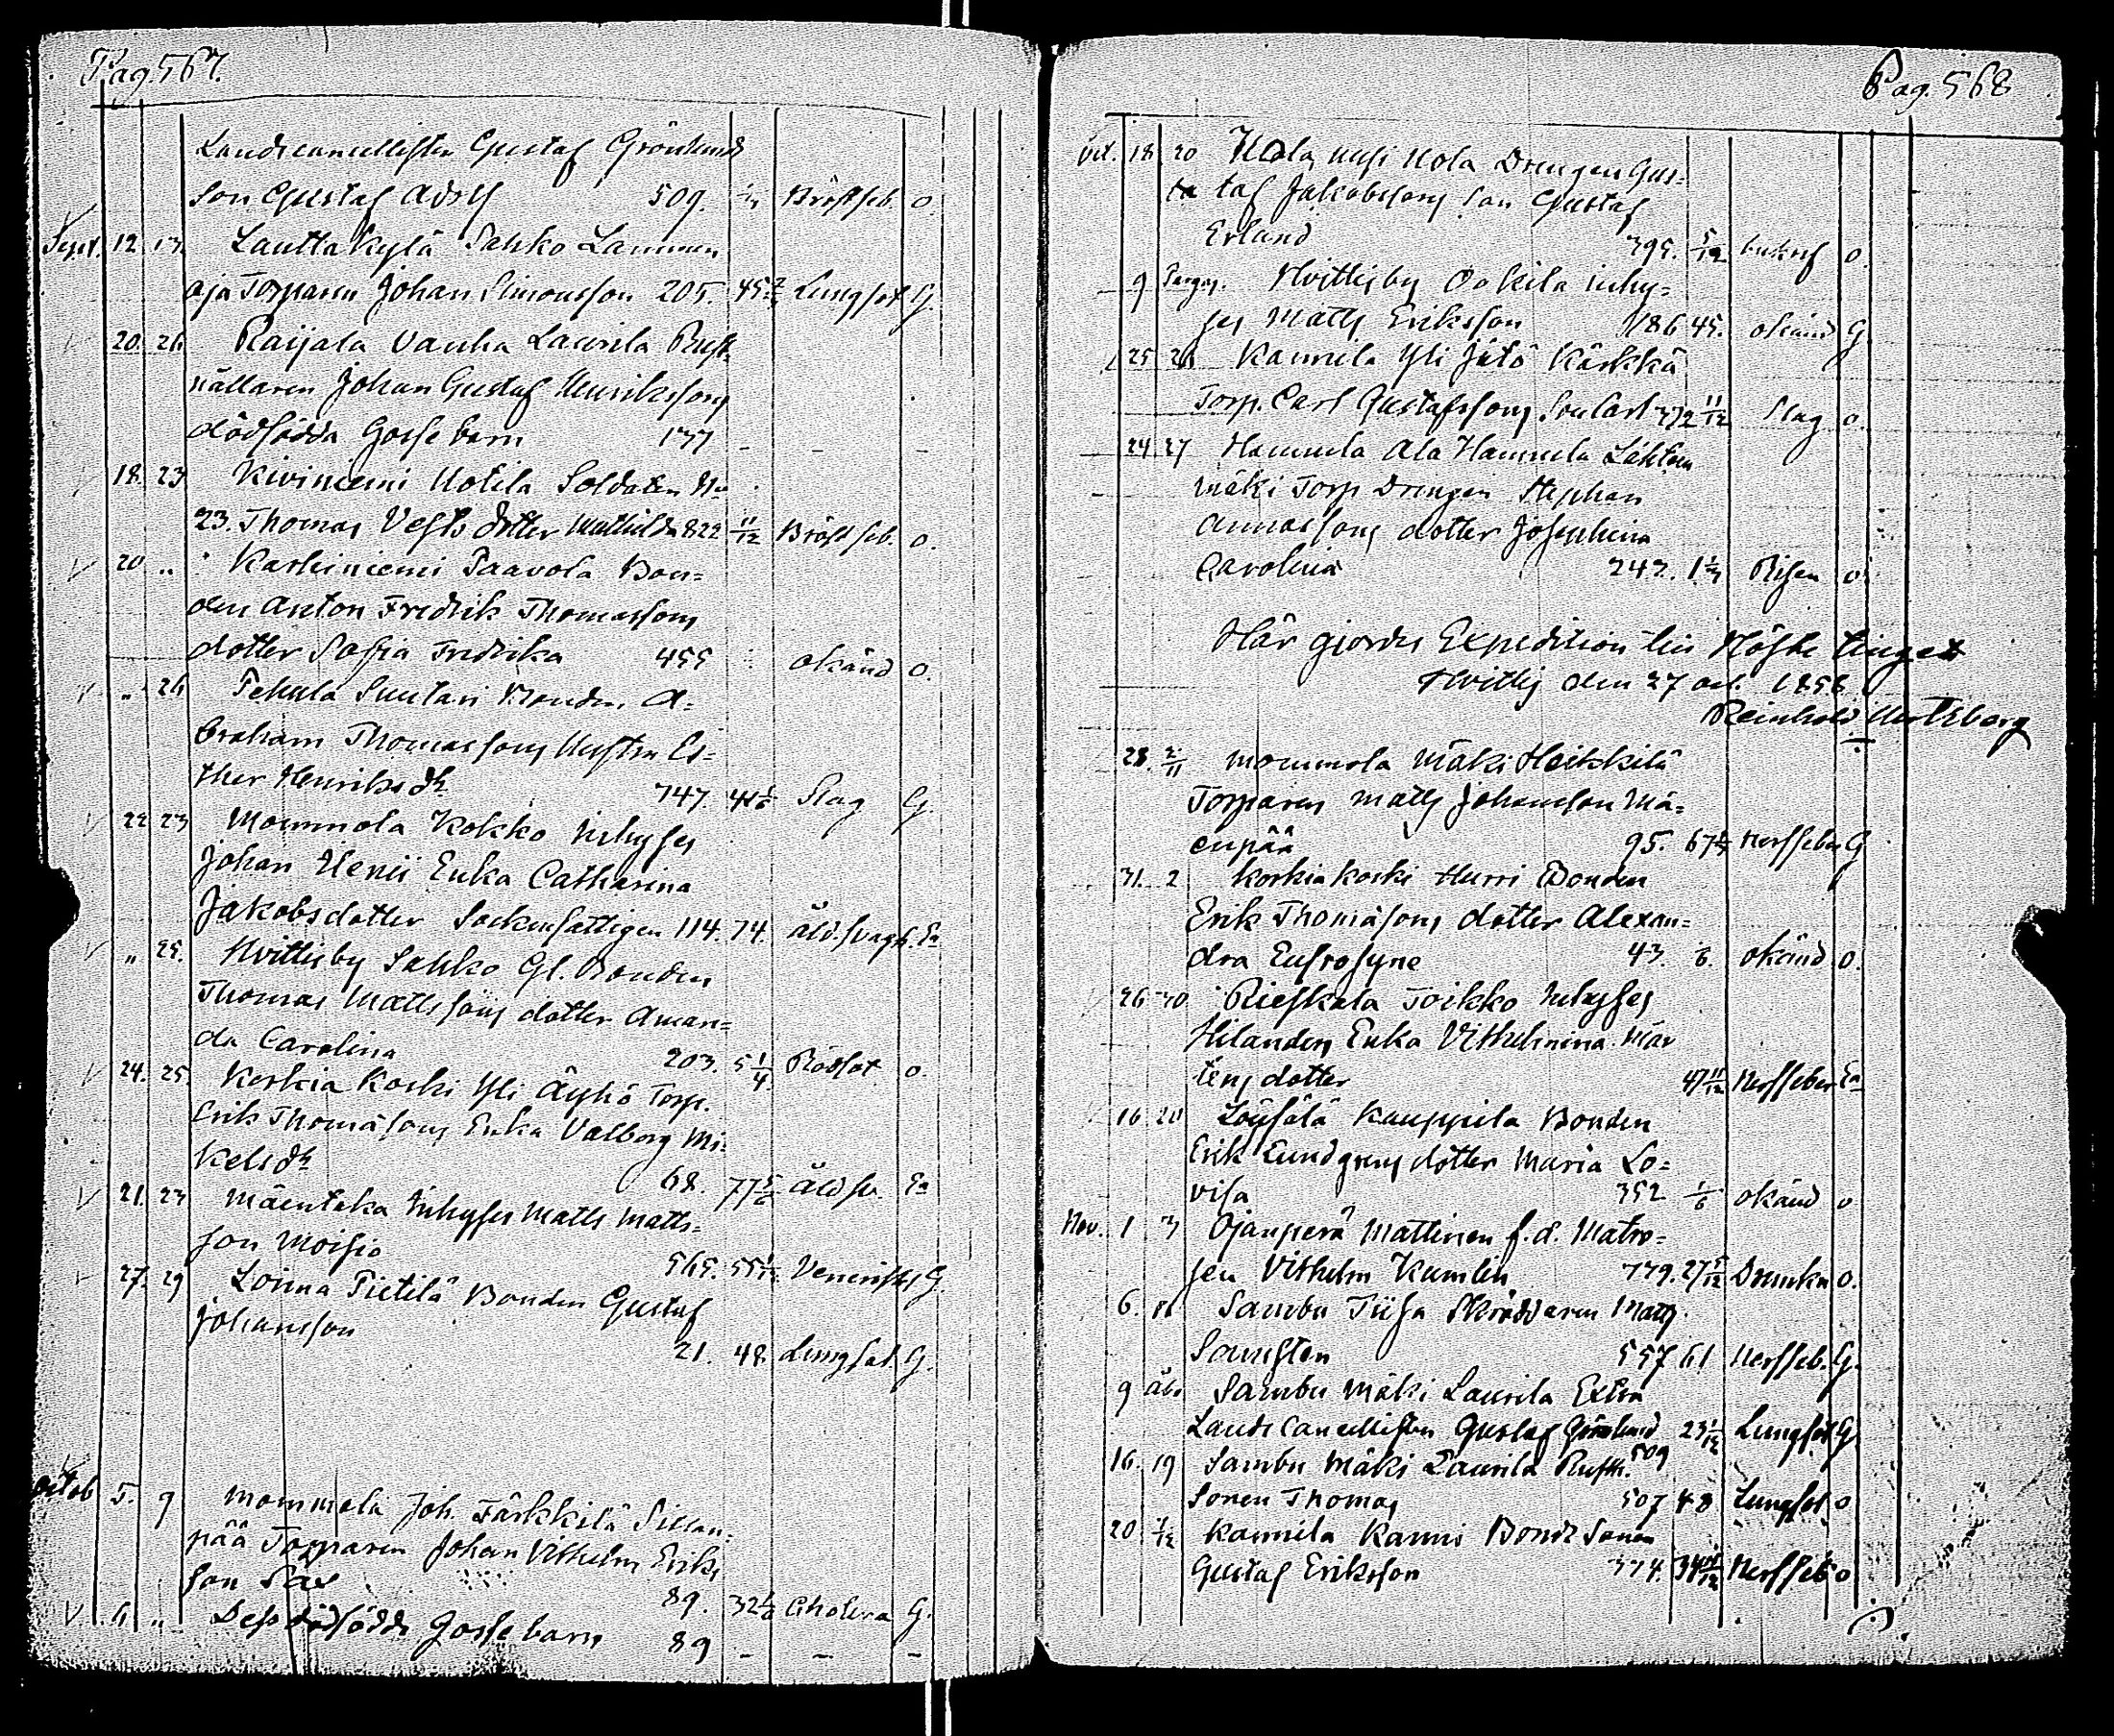 Pag. 567.
Landscancellisten Gustaf Grönlunds
Son Gustaf Adolf 509. Bröstfeb. o.
Sept. 12. 13. Lauttakylä Sahko Lammin
oja Torparen Johan Simonsson 205. 45 Lungsot G.
20. 26 Raijala Vanha Laurila Rust-
hållaren Johan Gustaf Henrikssons
dödfödda Gosse barn 137 - - -
18. 23 Kiviniemi Uotila Soldaten No
23. Thomas Vests dotter Mathilda 822 11/12 Bröst feb. o.
20 „ Karhiniemi Paavola Bon=
den Anton Fredrik Thomassons
dotter Sofia Fredrika 455 okänd o.
„ 26 Pehula Suutari Bonden A=
braham Thomassons Hustru Es=
ther Henriksdr 747. 41 1/6 Slag G.
22 23 Mommola Kokko Inhyses
Johan Enka Catharina
Jakobsdotter Sockenfattigen 114. 74. åld.svagh. Ea
„ 25. Hvittisby Sahko Gl. Bonden
Thomas Mattssons dotter Aman=
da Carolina 203. 5 1/4 Rödsot o.
24. 25. Korkia Koski Yli Äyhö Torp.
Erik Thomassons Enka Valborg Mi=
kelsdr 68. 77 5/6 Åld sv. Ea
21. 23 Mäentaka Inhyses Matts Matts=
son Moisio 565. 55 Venerisk G.
27. 29 Loima Pietilä Bonden Gustaf
Johansson 21. 48 Lungsot G.
Octob 5. 9 Mommola Joh. Färkkilä Sillan=
pää Torparen Johan Vilhelm Eriks
son Säv 89. 32 1/6 Cholera G.
6 „ Dess dödfödda Gosse barn 89 - - -
Pag. 568
Oct. 18 20 Uola Uusi Uola Drengen Gus=
taf Jakobssons Son Gustaf
Erland 395. 5/12 o.
9 Hvittisby Ookila inhy=
ses Matts Eriksson 186 45. okänd G
25 26 Kannila Yli Jätö Kärkkä
Torp. Carl Gustafssons Son Carl 372 11/12 Slag o.
24 27 Hannula Ala Hannula Lähteen
mäki Torp Drengen Stephan
Annassons dotter Josephina
Carolina 242. 1 Risen o
Här gjordes Expedition till Höste tinget
Hvittis den 27 oct. 1858
Reinhold Hertzberg
28. 2/11 Mommola Mäki Heikkilä
Torparen Matts Johansson Mä=
enpää 95. 67 Nerffeber G
31. 2 Korkiakoski Hurri Bonden
Erik Thomassons dotter Alexan=
dra Eufrosyne 43. 6. okänd o.
26 30 Rieskala Toikko Inhyses
Hilanders Enka Vilhelmina Mår
tens dotter 47 11/12 Nerffeber Ea
16 20 Löysälä Kauppila Bonden
Erik Lundgrens dotter Maria Lo=
visa 352 1/6 okänd o
Nov. 1 3 Ojanperä Mattinen f.d. Matro=
sen Vilhelm Kumlin 779. 27 5/12 Drunkn o.
6. Sambu Tiisa Skräddaren Matts
557 61 Nerffeb. G.
9 Sambu Mäki Laurila Extra
Landscancellisten Gustaf Grönlund 23 1/12 Lungsot G
509
16. 19 Sambu Mäki Laurila Rusth.
Sonen Thomas 507 48 Lungsot o
20 Kannila Kanni Bonde Sonen
Gustaf Eriksson 374. 34 Nerffeb o